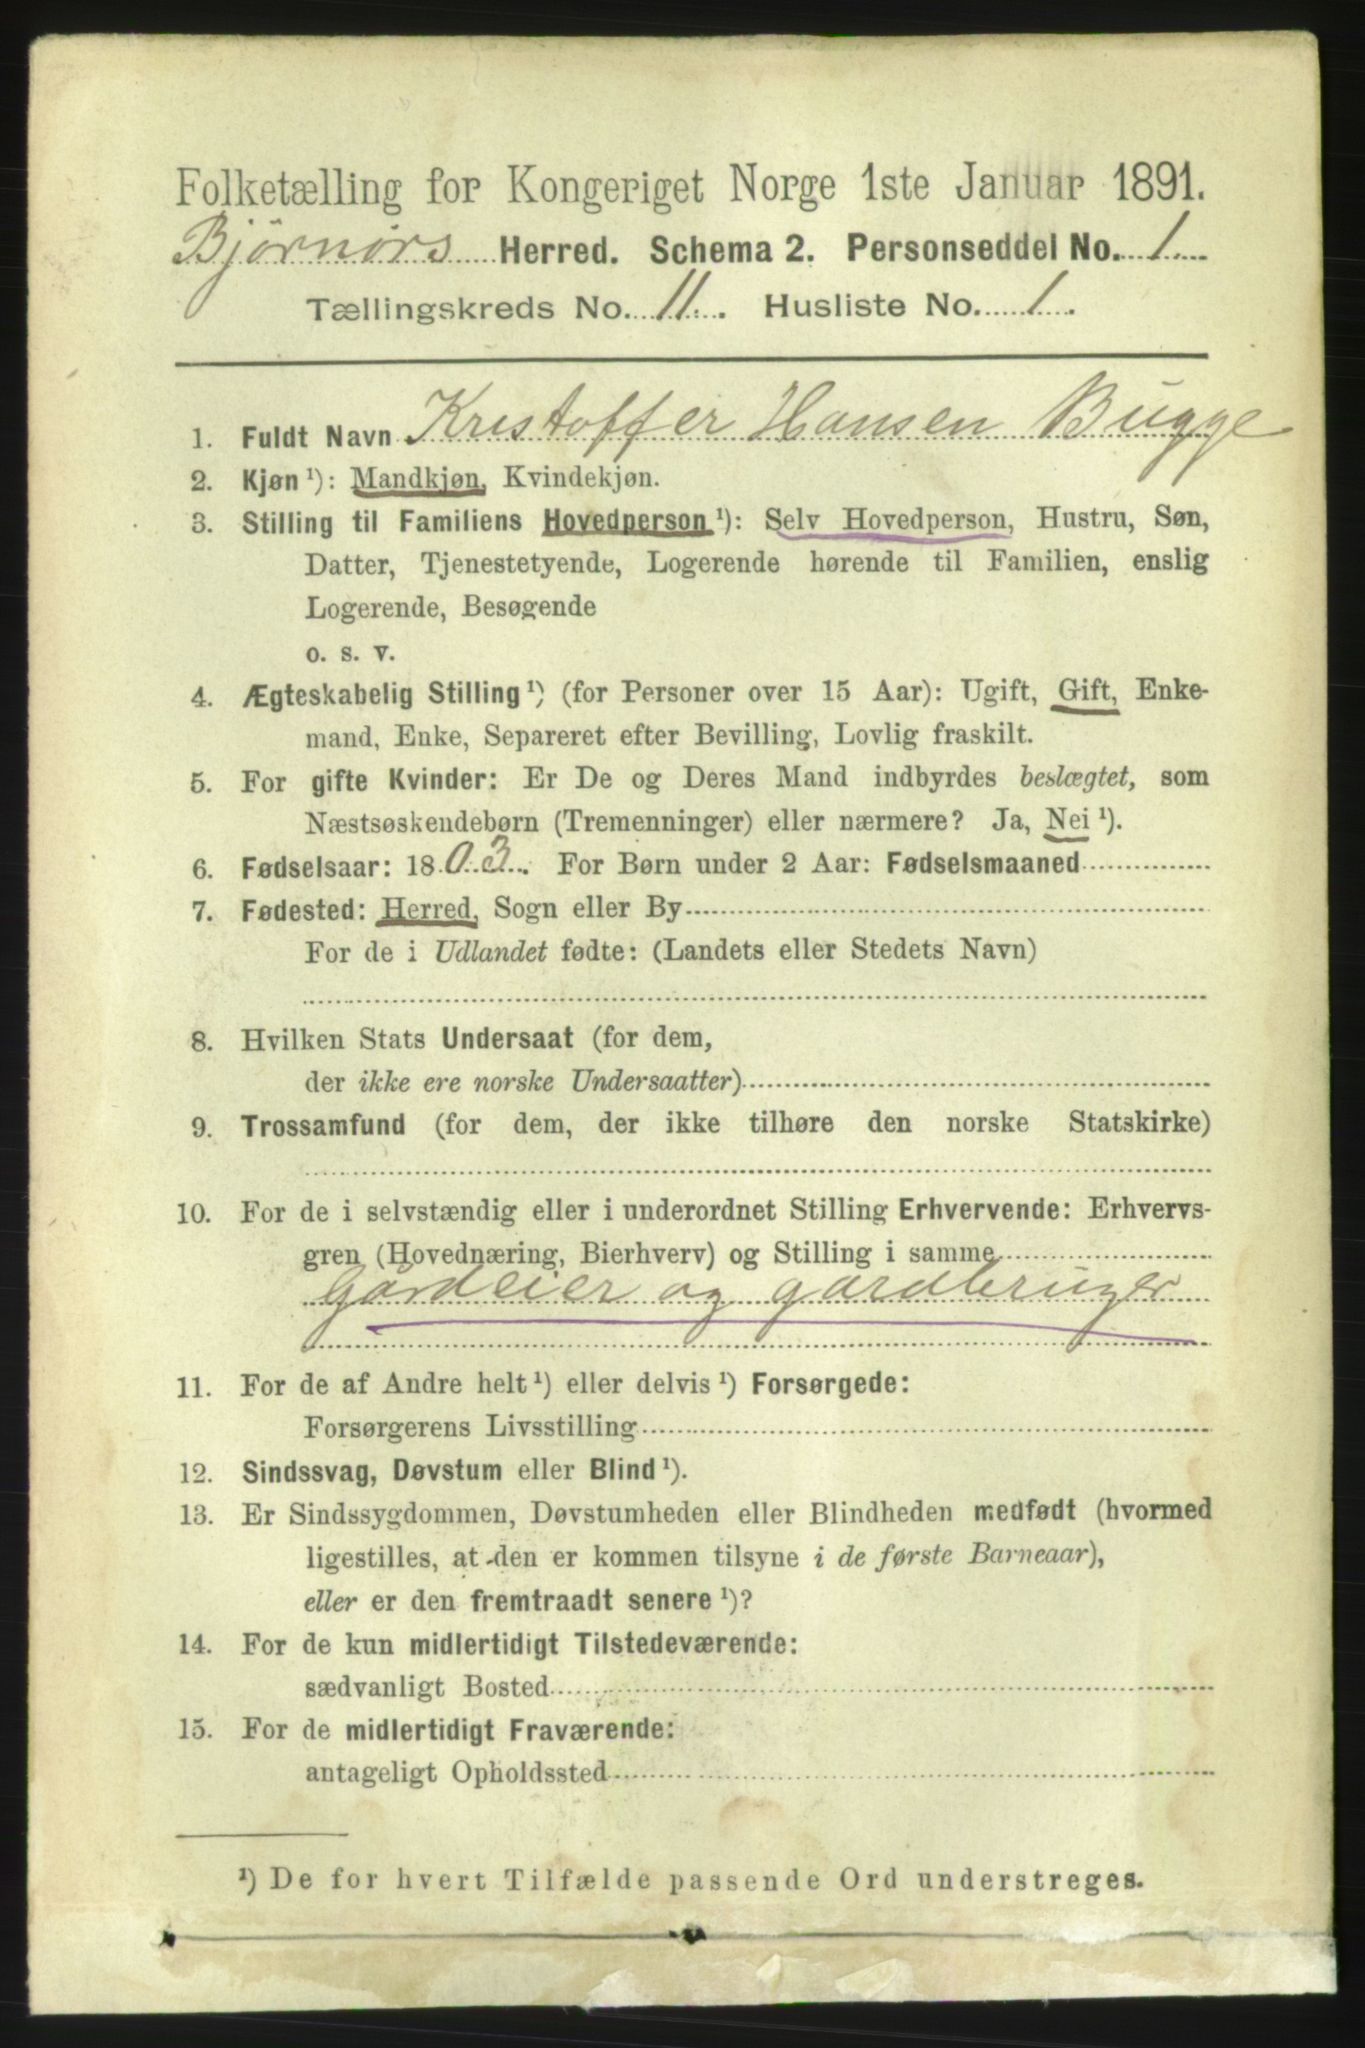 Folketælling for Kongeriget Norge 1ste Januar 1891.
Bjørnørs Herred. Schema 2. Personseddel No. 1.
Tællingskreds No. 11. Husliste No. 1.
1. Fuldt Navn Kristoffer Hansen Bugge
2. Kjøn ¹): Mandkjøn, Kvindekjøn.
3. Stilling til Familiens Hovedperson ¹): Selv Hovedperson, Hustru, Søn,
Datter, Tjenestetyende, Logerende hørende til Familien, enslig
Logerende, Besøgende
o. s. v.
4. Ægteskabelig Stilling ¹) (for Personer over 15 Aar): Ugift, Gift, Enke-
mand, Enke, Separeret efter Bevilling, Lovlig fraskilt.
5. For gifte Kvinder: Er De og Deres Mand indbyrdes beslægtet, som
Næstsøskendebørn (Tremenninger) eller nærmere? Ja, Nei ¹).
6. Fødselsaar: 1803. For Børn under 2 Aar: Fødselsmaaned
7. Fødested: Herred, Sogn eller By
For de i Udlandet fødte: (Landets eller Stedets Navn)
8. Hvilken Stats Undersaat (for dem,
der ikke ere norske Undersaatter)
9. Trossamfund (for dem, der ikke tilhøre den norske Statskirke)
10. For de i selvstændig eller i underordnet Stilling Erhvervende: Erhvervs-
gren (Hovednæring, Bierhverv) og Stilling i samme
Gårdeier og gardbruger
11. For de af Andre helt ¹) eller delvis ¹) Forsørgede:
Forsørgerens Livsstilling
12. Sindssvag, Døvstum eller Blind ¹).
13. Er Sindssygdommen, Døvstumheden eller Blindheden medfødt (hvormed
ligestilles, at den er kommen tilsyne i de første Barneaar),
eller er den fremtraadt senere ¹)?
14. For de kun midlertidigt Tilstedeværende:
sædvanligt Bosted
15. For de midlertidigt Fraværende:
antageligt Opholdssted
¹) De for hvert Tilfælde passende Ord understreges.